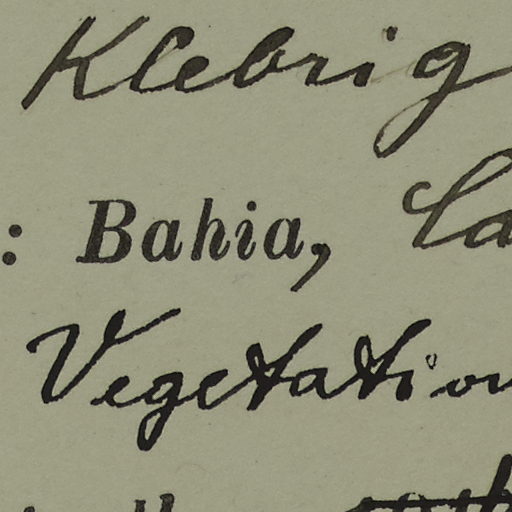 Klebrig
: Bahia, Ca
Vegetation